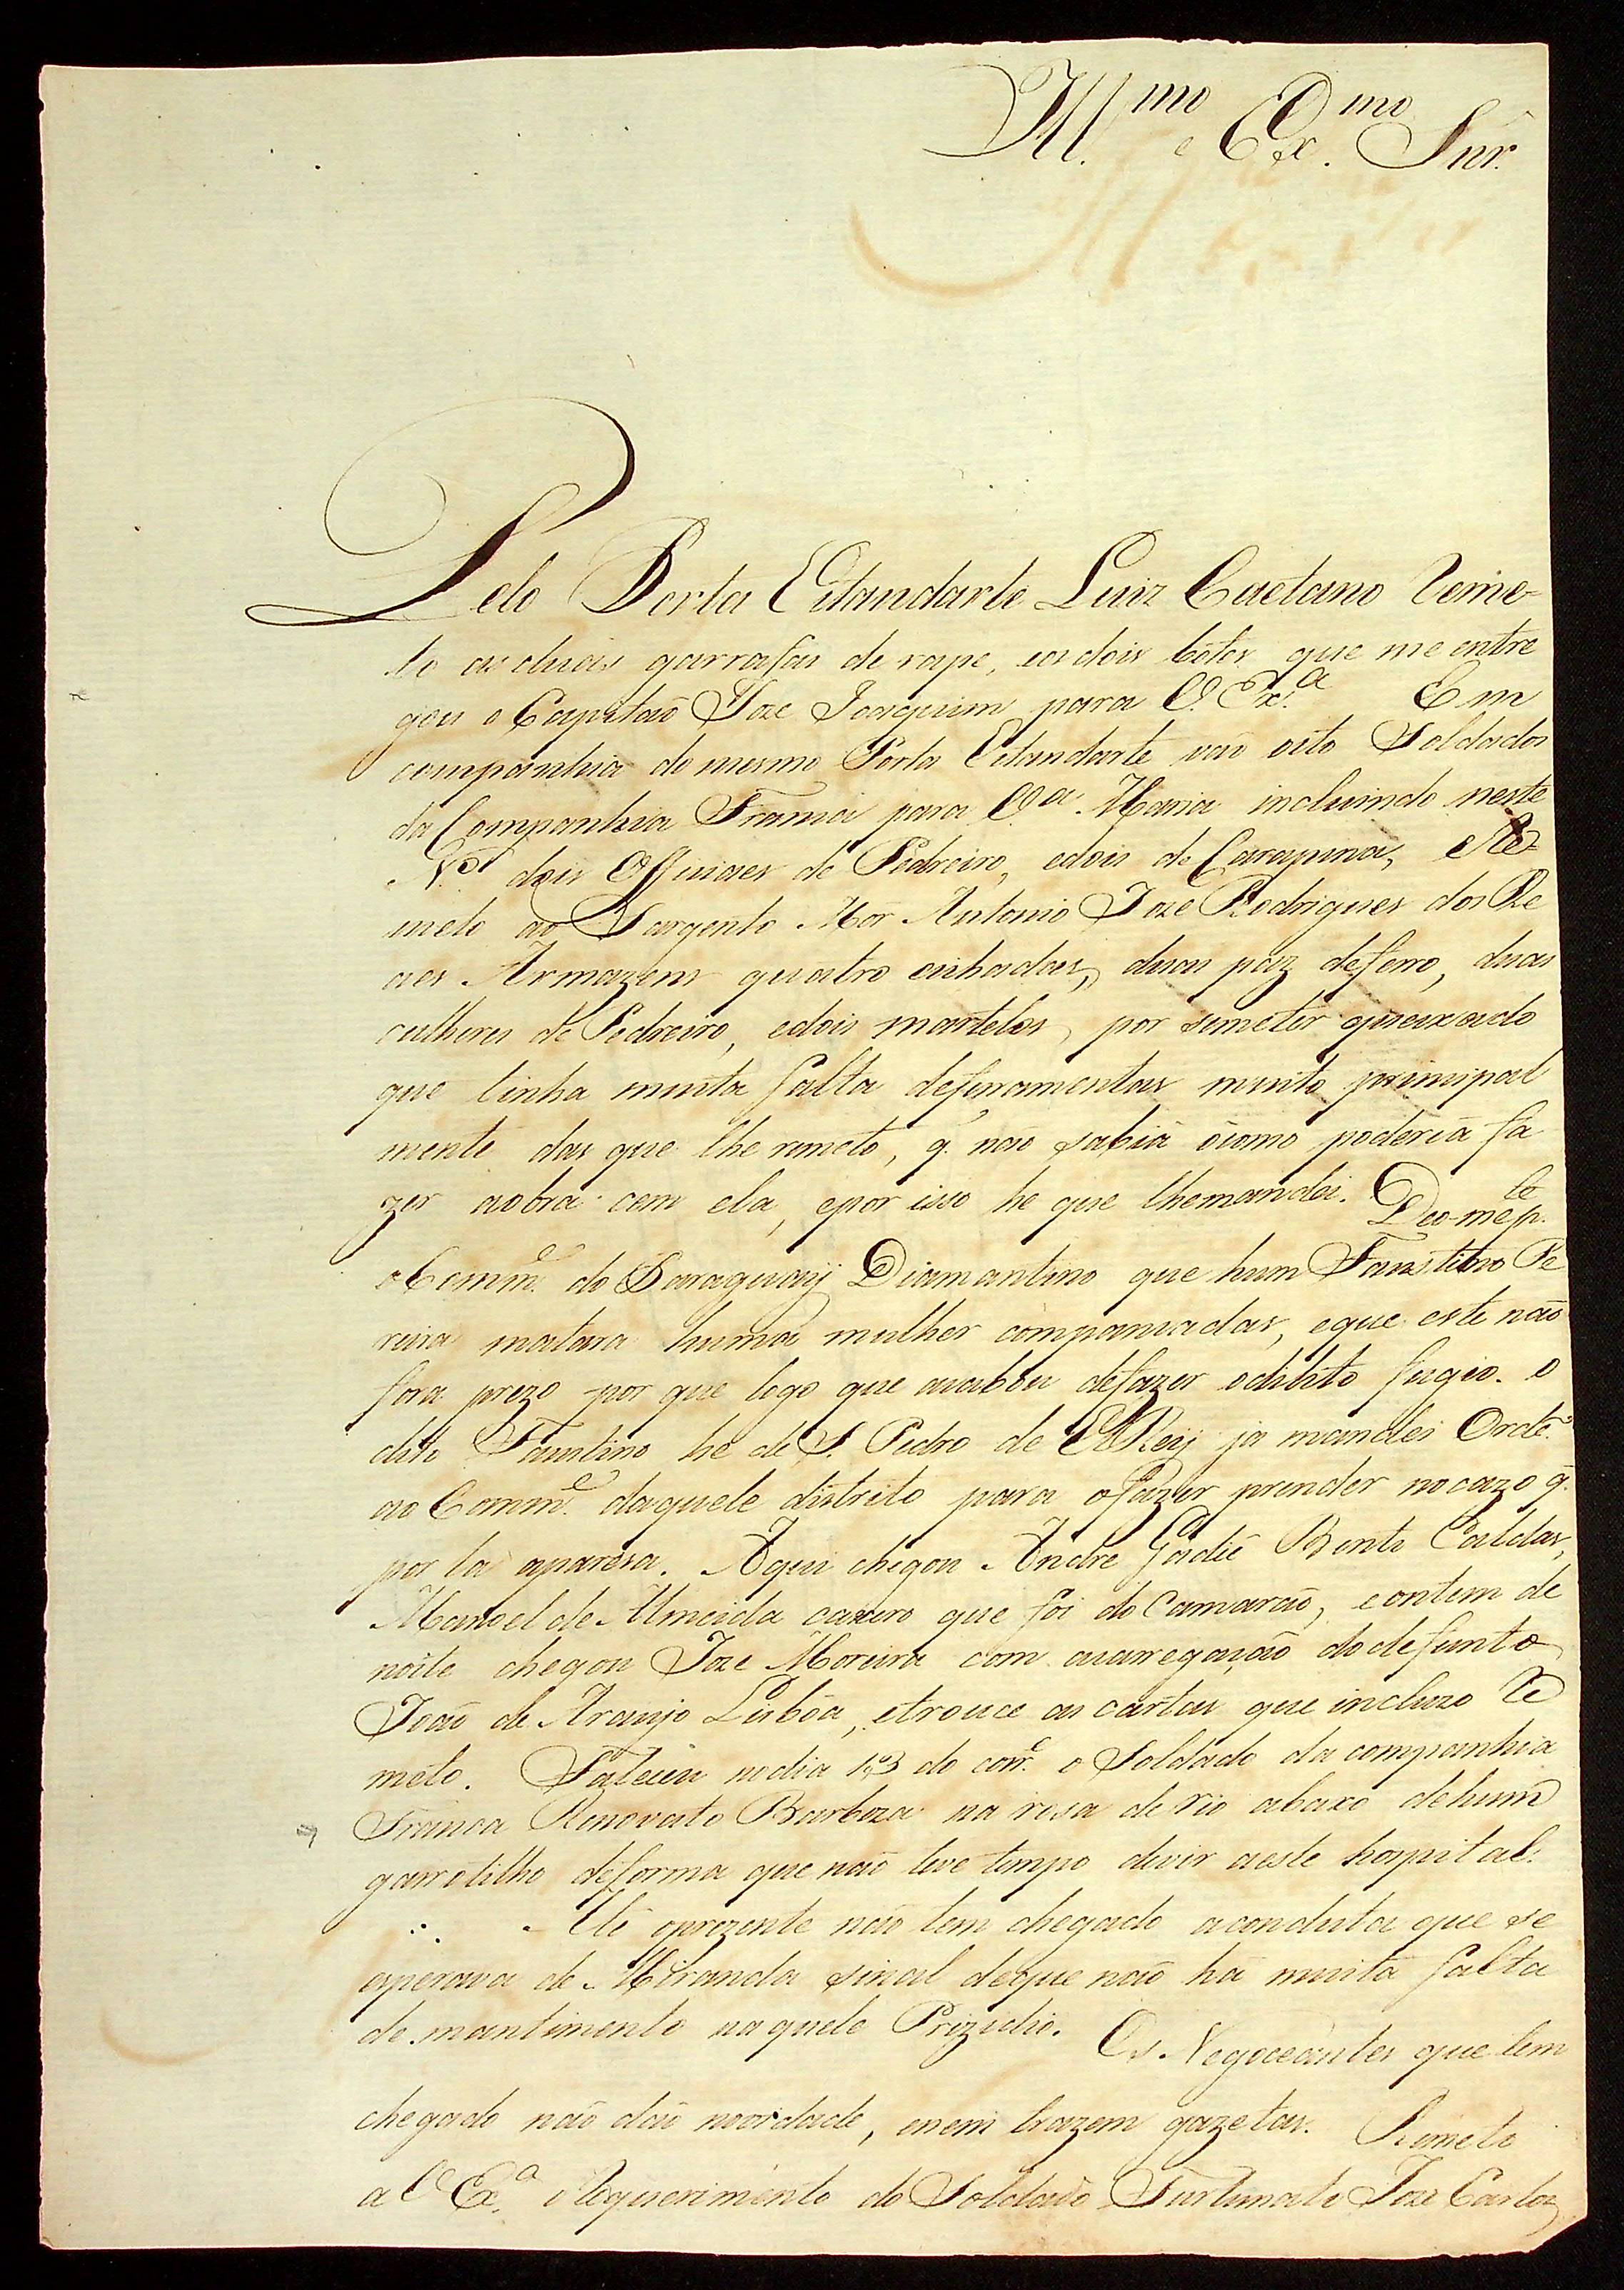 Ill.mo e Ex.mo Snr.
Pelo Porta Estandarte Luiz Caetano Reme-
to as duas garrafas de rape, e os dois bótes que me entre
gou o Capitaõ Joze Joaquim para V. Ex.a Em
companhia do mesmo Porta Estandarte vaõ oito Soldados
da Companhia Franca para V.a Maria incluindo neste
N.o dois Officiaes de Pedreiro, e dois de Carapina, e Re
meto ao Sargento Mór Antonio Joze Rodrigues dos Re
aes Armazens quatro enhadas, duas páz de ferro, duas
culheres de Pedreiro, e dois martelos, por se me ter queixado
que tinha muita falta de feramentas muito principal
mente das que lhe remeto, q. não sabia ócomo poderia fa
zer a obra sem ela, e por isso he que lhe mandei. Deo-me p.te
o Comm.e do Paraguay Diamantino que hum Faustino Pe
reira matara huma mulher com pancadas, e que este não
fora prezo por que logo que acabou de fazer o delito fugio. o
dito Faustino he de S. Pedro de ElRey ja mandei Orde.
ao Comm.e daquele distrito para o fazer prender no cazo q.
por la aparesa. Aqui chegou Andre Gadie Bento Caldas,
Manoel de Almeida caxero que foi do Camaraõ, e ontem de
noite chegou Joze Moreira com a caregação do defunto
João de Araujo Lisbóa, e trouce as cartas que incluzo Re
meto. Faleceu no dia 13 do corr.e o Soldado da companhia
Franca Renovato Barboza na rosa de rio abaxo de hum
garrotilho de forma que não teve tempo de vir a este hospital.
Até o prezente não tem chegado a conduta que se
esperava de Miranda sinal de que não há muita falta
de mantimento naquele Prizidio. Os Negoceantes que tem
chegado não dão novidade, e nem trazem gazetas. Remeto
a V. Ex.a o Requerimento do Soldado Furtunato Joze Carlos